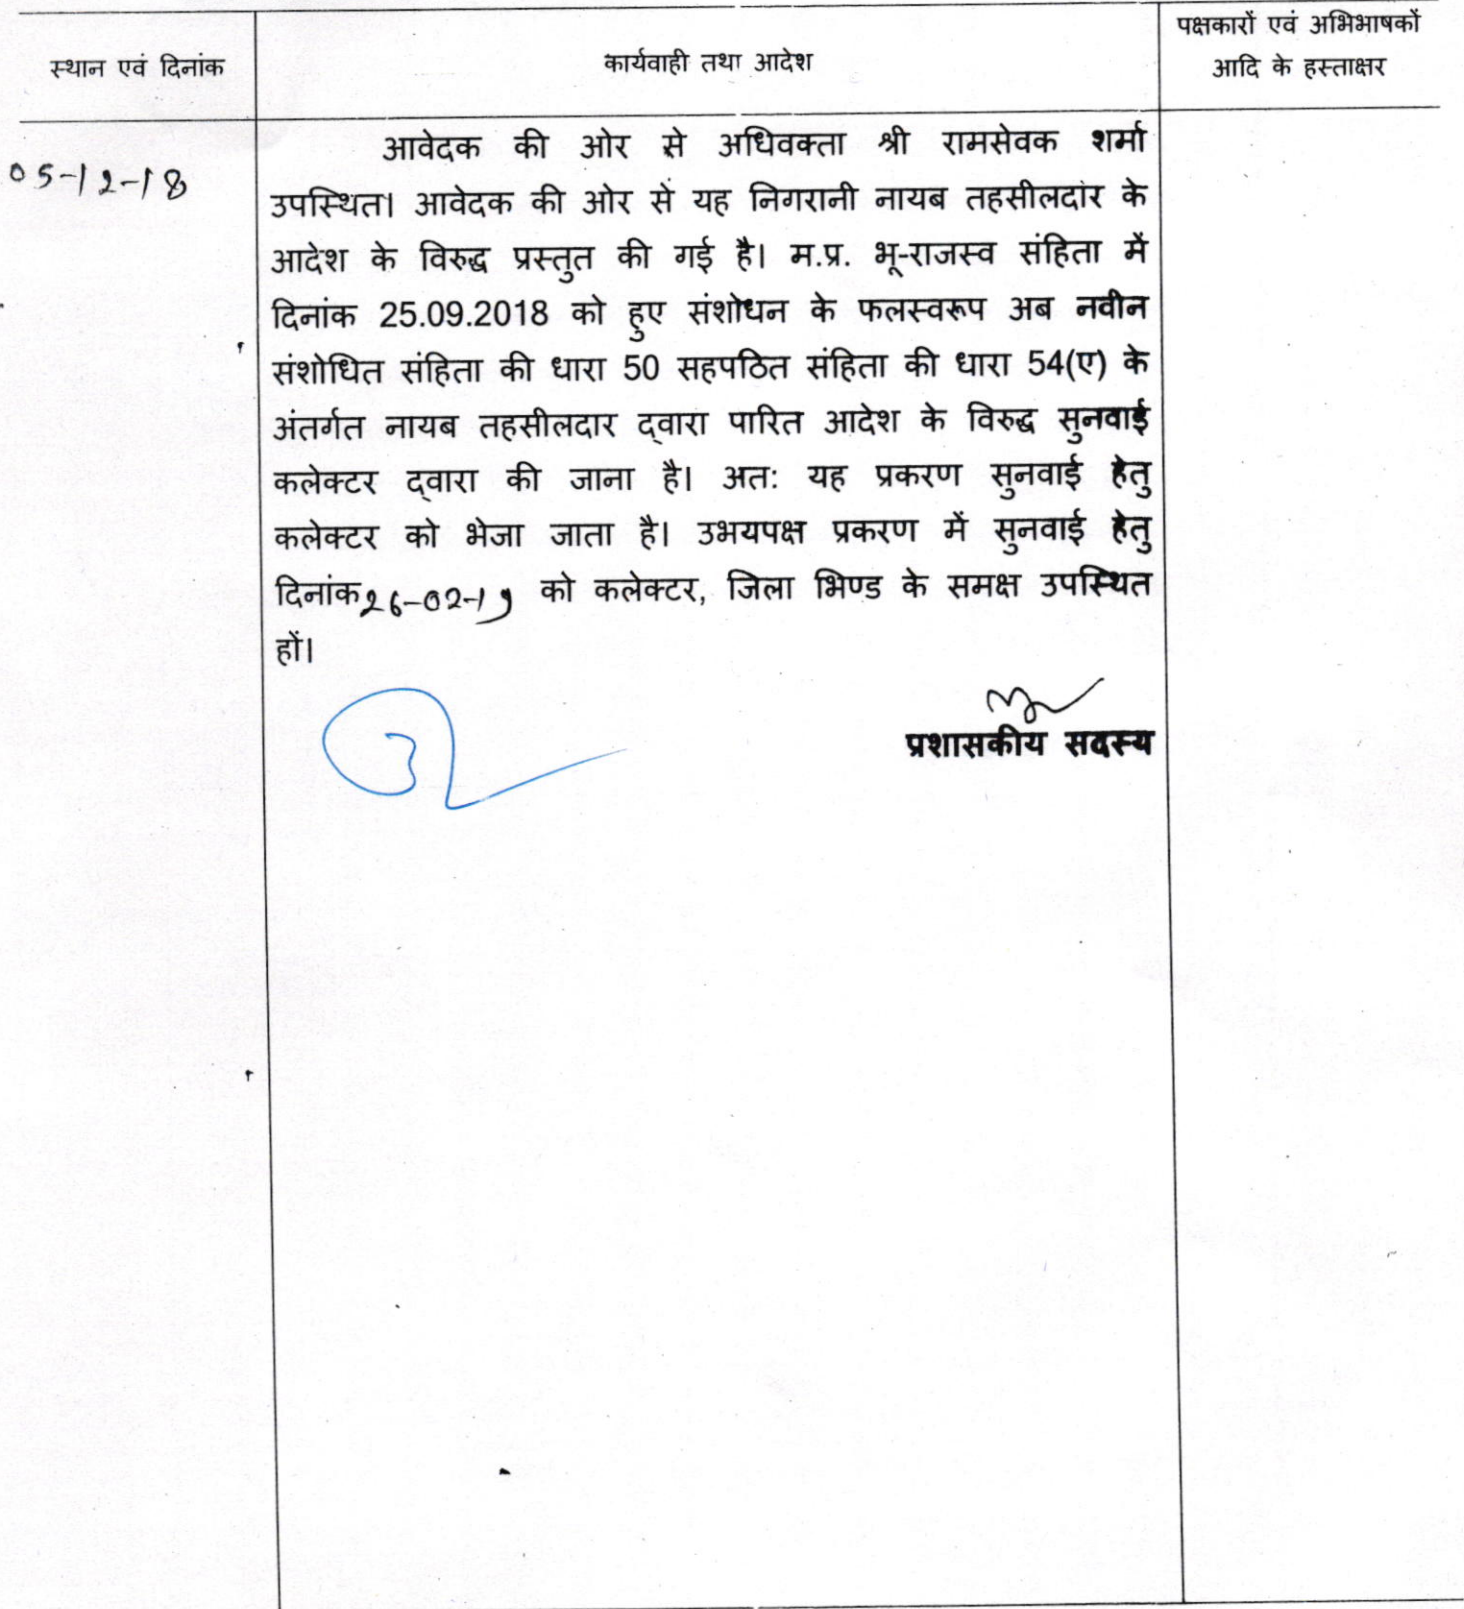 स्थान एवं दिनांक
कार्यवाही तथा आदेश
पक्षकारों एवं अभिभाषकों
आदि के हस्ताक्षर
05-12-18
आवेदक की ओर से अधिवक्ता श्री रामसेवक शर्मा
उपस्थित। आवेदक की ओर से यह निगरानी नायब तहसीलदार के
आदेश के विरुद्ध प्रस्तुत की गई है। म.प्र. भू-राजस्व संहिता में
दिनांक 25.09.2018 को हुए संशोधन के फलस्वरूप अब नवीन
संशोधित संहिता की धारा 50 सहपठित संहिता की धारा 54(ए) के
अंतर्गत नायब तहसीलदार द्वारा पारित आदेश के विरुद्ध सुनवाई
कलेक्टर द्वारा की जाना है। अतः यह प्रकरण सुनवाई हेतु
कलेक्टर को भेजा जाता है। उभयपक्ष प्रकरण में सुनवाई हेतु
दिनांक 26-02-19 को कलेक्टर, जिला भिण्ड के समक्ष उपस्थित
हों।
प्रशासकीय सदस्य